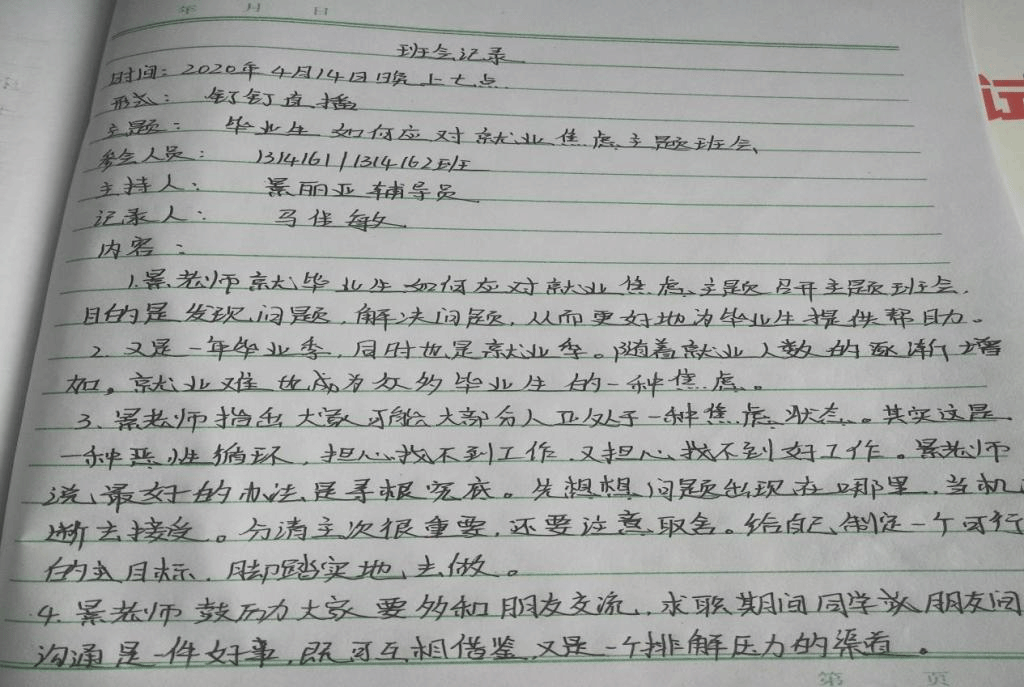 年 月 日
班会记录
时间：2020年4月14日晚上七点
形式：钉钉直播
主题：毕业生如何应对就业焦虑主题班会
参会人员：1314161/1314162班
主持人：景丽亚辅导员
记录人：马佳敏
内容：
1.景老师就毕业生如何应对就业焦虑主题召开主题班会，
目的是发现问题，解决问题，从而更好地为毕业生提供帮助。
2.又是一年毕业季，同时也是就业季。随着就业人数的逐渐增
加。就业难也成为众多毕业生的一种焦虑。
3.景老师指出大家可能大部分人正处于一种焦虑状态。其实这是
一种恶性循环，担心找不到工作，又担心找不到好工作。景老师
说，最好的办法是寻根究底。先想想问题出现在哪里，当机
断去接受。分清主次很重要，还要注意取舍。给自己制定一个可行
的大目标，脚踏实地去做。
4.景老师鼓励大家要多和朋友交流，求职期间同学或朋友间
沟通是一件好事，既可互相借鉴，又是一个排解压力的渠道。
第 页
试